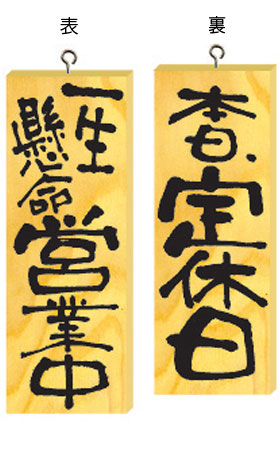 表
一生
懸命
営業中
裏
本日、
定休日